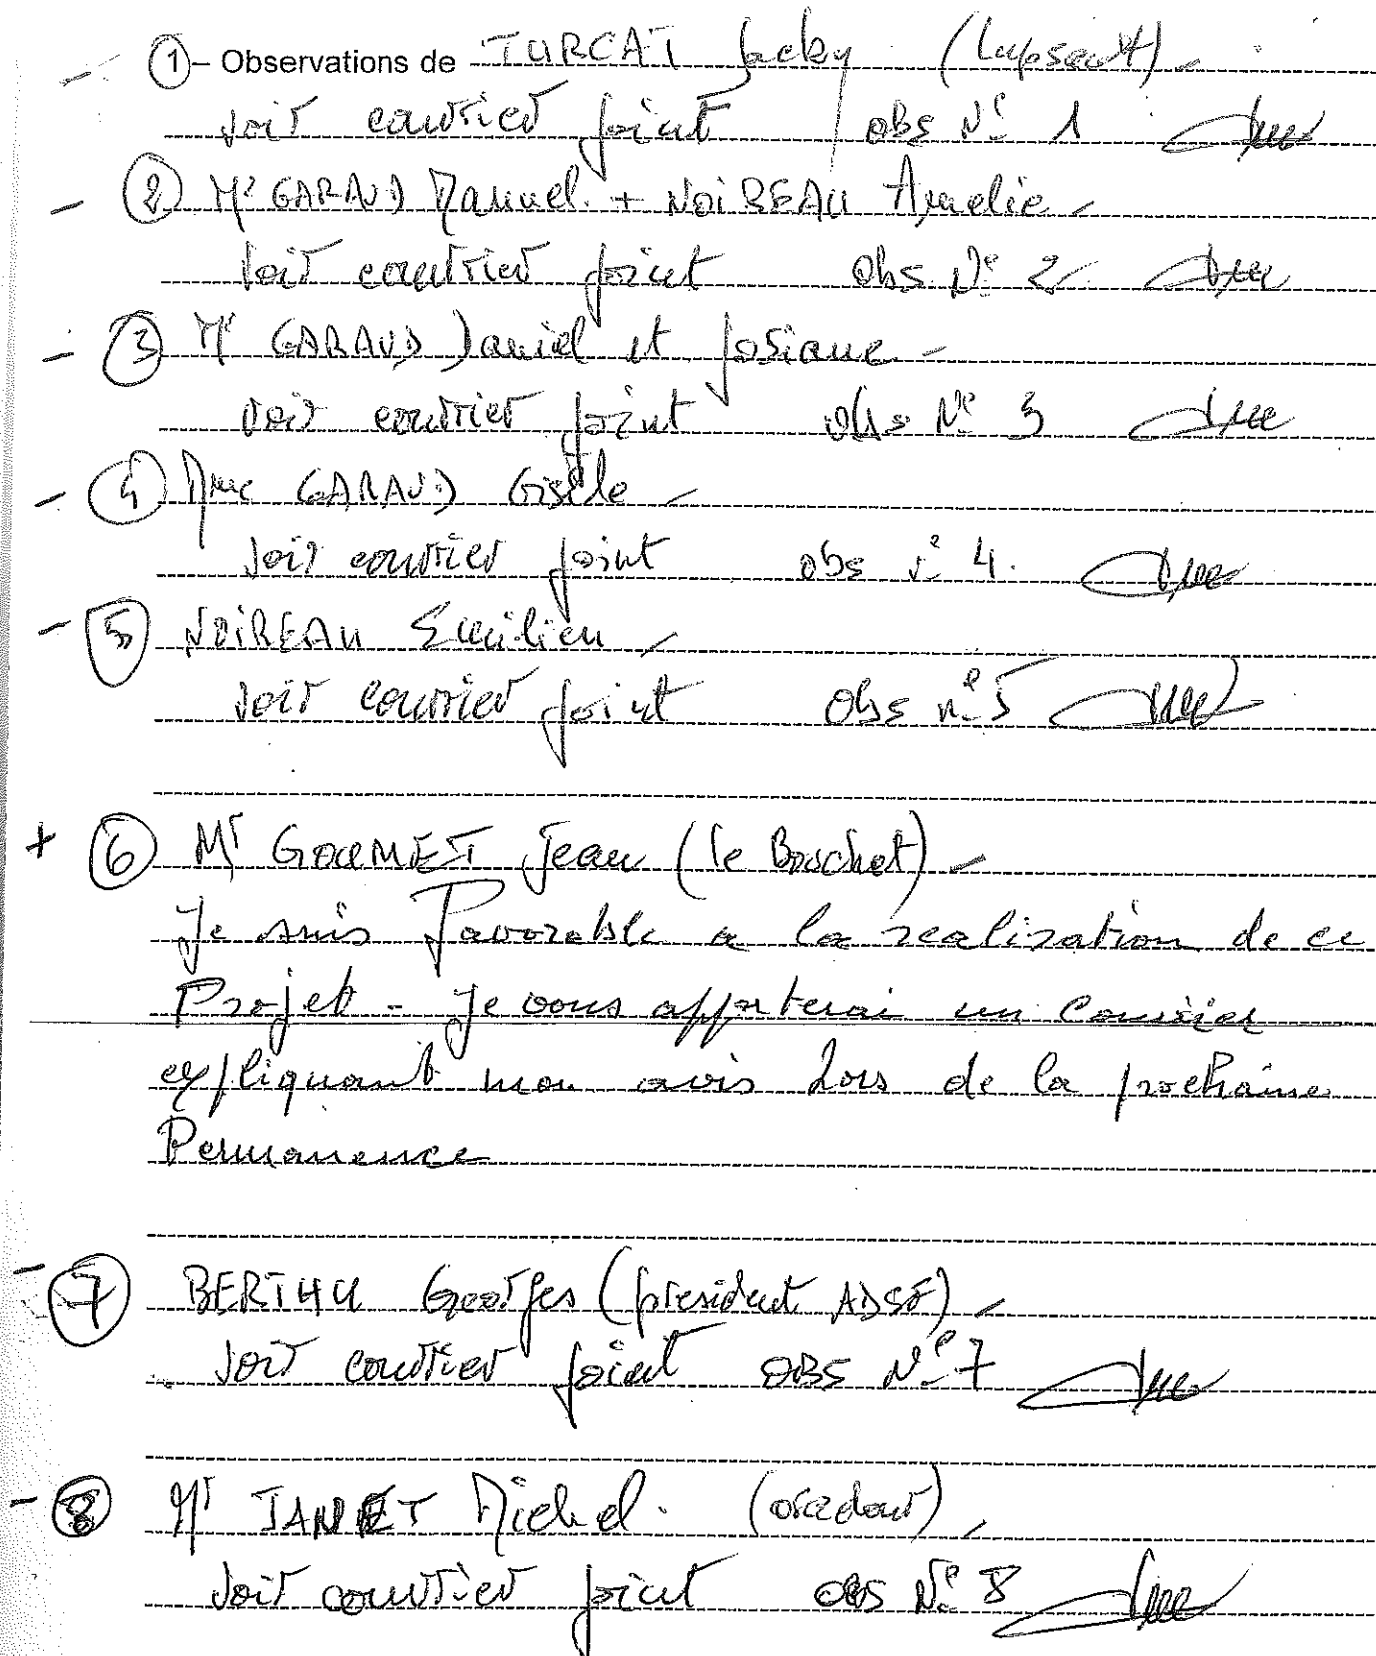 - ① – Observations de TURCAT Jacky (Lupsault) -
voir courrier joint obs N° 1
- ② Mr GARAUD Manuel. + NOIREAU Amelie -
voir courrier joint obs N° 2
- ③ Mr GARAUD Daniel et Josiane -
voir courrier joint obs N° 3
- ④ Mme GARAUD Gisèle -
voir courrier joint obs n° 4.
- ⑤ NOIREAU Emilien -
voir courrier joint obs n° 5
+ ⑥ Mr GOUMET Jean (le Bouchet) -
Je suis Favorable a la realisation de ce
Projet - Je vous apporterai un Courrier
expliquant mon avis Lors de la prochaine
Permanence
- ⑦ BERTHU Georges (président ADSF) -
voir courrier joint OBS N° 7
- ⑧ Mr JANNET Michel. (oradour) -
voir courrier joint obs N° 8